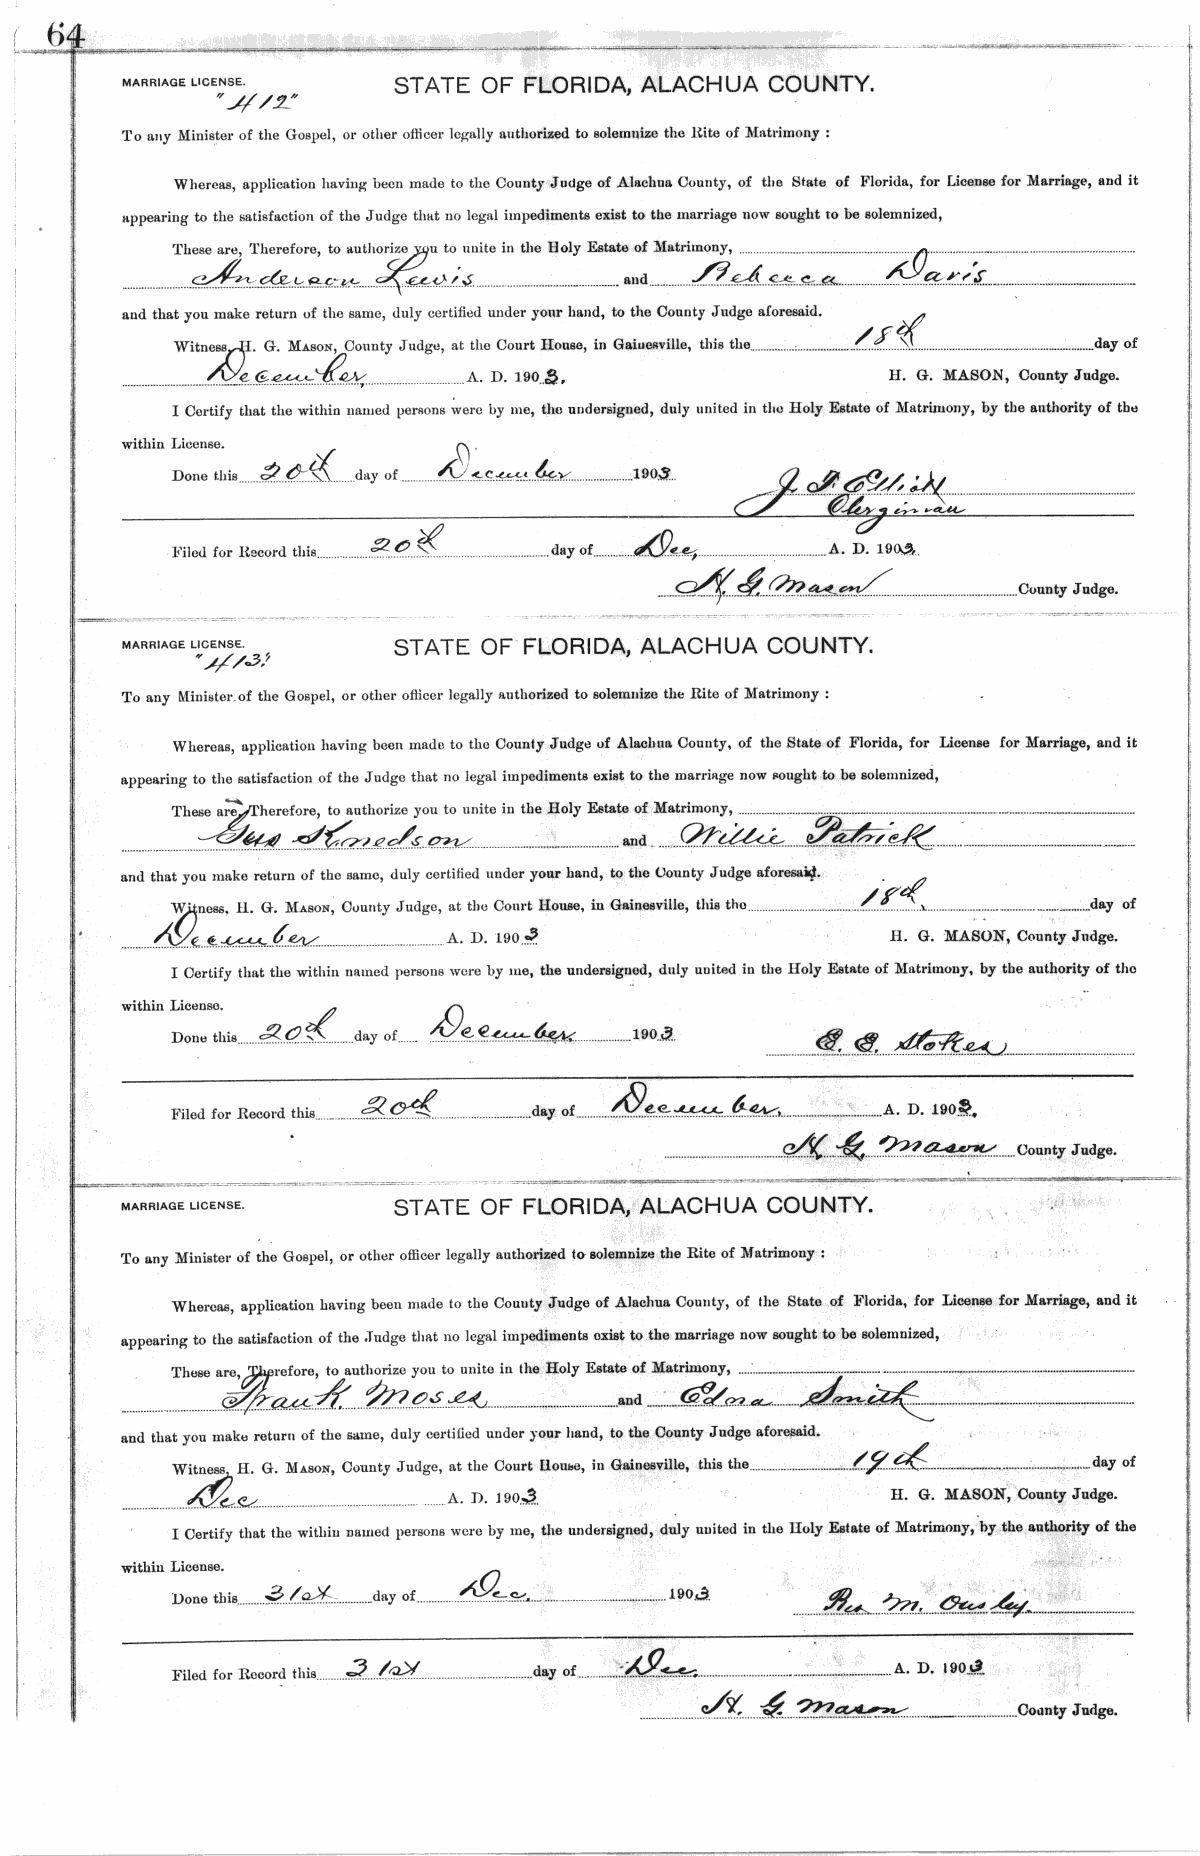 64
MARRIAGE LICENSE. STATE OF FLORIDA, ALACHUA COUNTY.
"412"
To any Minister of the Gospel, or other officer legally authorized to solemnize the Rite of Matrimony :
Whereas, application having been made to the County Judge of Alachua County, of the State of Florida, for License for Marriage, and it
appearing to the satisfaction of the Judge that no legal impediments exist to the marriage now sought to be solemnized,
These are, Therefore, to authorize you to unite in the Holy Estate of Matrimony,
Anderson Lewis and Rebecca Davis
and that you make return of the same, duly certified under your hand, to the County Judge aforesaid.
Witness, H. G. MASON, County Judge, at the Court House, in Gainesville, this the 18th day of
December, A. D. 1903. H. G. MASON, County Judge.
I Certify that the within named persons were by me, the undersigned, duly united in the Holy Estate of Matrimony, by the authority of the
within License.
Done this 20th day of December 1903
J. T. Elliott
Clergiman
Filed for Record this 20th day of Dec, A. D. 1903.
H. G. Mason County Judge.
MARRIAGE LICENSE. STATE OF FLORIDA, ALACHUA COUNTY.
"413"
To any Minister of the Gospel, or other officer legally authorized to solemnize the Rite of Matrimony :
Whereas, application having been made to the County Judge of Alachua County, of the State of Florida, for License for Marriage, and it
appearing to the satisfaction of the Judge that no legal impediments exist to the marriage now sought to be solemnized,
These are, Therefore, to authorize you to unite in the Holy Estate of Matrimony,
Gus Knedson and Willie Patrick
and that you make return of the same, duly certified under your hand, to the County Judge aforesaid.
Witness, H. G. MASON, County Judge, at the Court House, in Gainesville, this the 18th, day of
December A. D. 1903 H. G. MASON, County Judge.
I Certify that the within named persons were by me, the undersigned, duly united in the Holy Estate of Matrimony, by the authority of the
within License.
Done this 20th day of December. 1903 E. E. Stokes
Filed for Record this 20th day of December. A. D. 1903.
H. G. Mason County Judge.
MARRIAGE LICENSE. STATE OF FLORIDA, ALACHUA COUNTY.
To any Minister of the Gospel, or other officer legally authorized to solemnize the Rite of Matrimony :
Whereas, application having been made to the County Judge of Alachua County, of the State of Florida, for License for Marriage, and it
appearing to the satisfaction of the Judge that no legal impediments exist to the marriage now sought to be solemnized,
These are, Therefore, to authorize you to unite in the Holy Estate of Matrimony,
Frank Moses and Edna Smith
and that you make return of the same, duly certified under your hand, to the County Judge aforesaid.
Witness, H. G. MASON, County Judge, at the Court House, in Gainesville, this the 19th day of
Dec A. D. 1903 H. G. MASON, County Judge.
I Certify that the within named persons were by me, the undersigned, duly united in the Holy Estate of Matrimony, by the authority of the
within License.
Done this 31st day of Dec. 1903 Rev M. Ousley.
Filed for Record this 31st day of Dec. A. D. 1903
H. G. Mason County Judge.